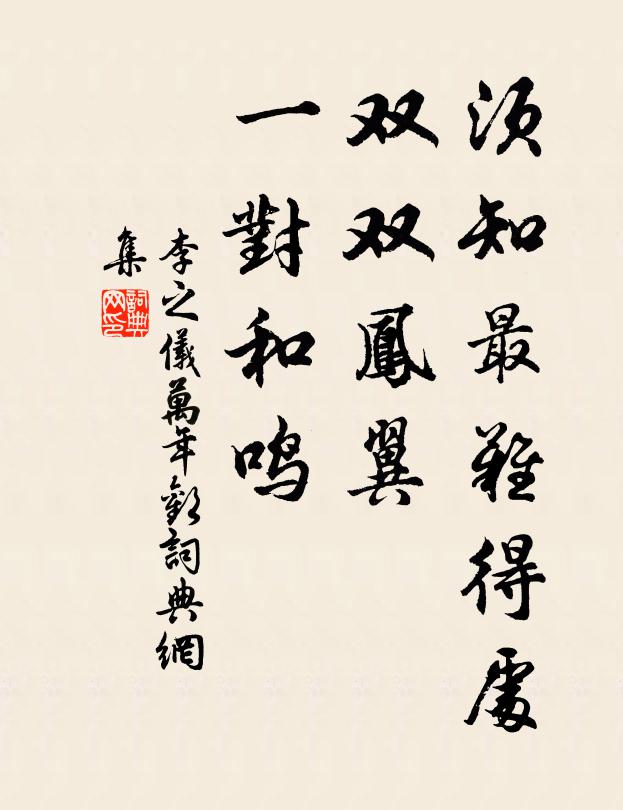 须知最难得處
双双鳳翼
一對和鸣
李之儀萬年歡詞典網
集
詞典
网印